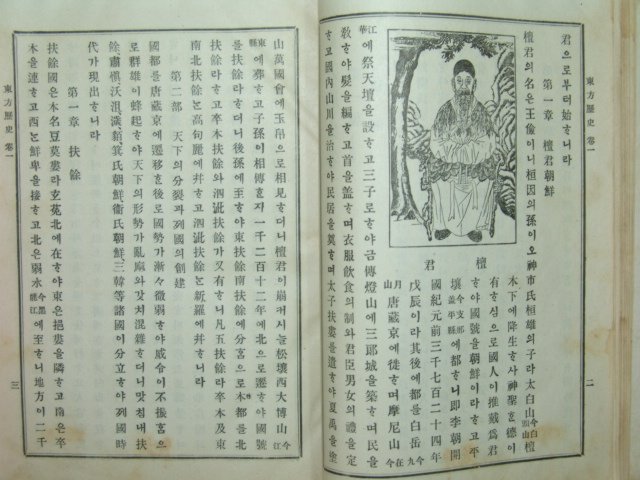 東方歷史 卷一
二
君으로부터始하니라
第一章 檀君朝鮮
檀君의名은王儉이니桓因의孫이오神市氏桓雄의子라太白山今白頭山檀
木下에降生하사神聖한德이
有하심으로國人이推戴爲君
하야國號를朝鮮이라하고平
壤今支那盖平縣에都하니即李朝開
國紀元前三千七百二十四年
戊辰이라其後에都를白岳今九
月山唐藏京에徙하며摩尼山今在
江華에祭天壇을設하고三子로하야금傳燈山에三郎城을築하며民을
敎하야髮을編하고首을盖하며衣服飮食의制와君臣男女의禮을定
하고國內山川을治하야民居을奠하며太子扶婁을遣하야夏禹을塗
檀君
山萬國會에玉帛으로相見하더니檀君이崩커시늘松壤西大博山今江
東縣에葬하고子孫이相傳한지一千二百十二年에北으로遷하야國號
를扶餘라하더니後孫에至하야東扶餘南扶餘에分함으로本都를北
扶餘라하고卒本扶餘와泗沘扶餘가又有하니凡五扶餘라卒本及東
南北扶餘는高句麗에幷하고泗沘扶餘는新羅에幷하니라
第二部 天下의分裂과列國의創建
國都를唐藏京에遷移한後로國勢가漸々微弱하야威令이不振함으
로群雄이蜂起하야天下의形勢가亂麻와갓치混雜하더니맛침내扶
餘肅愼沃沮濊貊箕氏朝鮮衛氏朝鮮三韓等諸國이分立하야列國時
代가現出하니라
第一章 扶餘
扶餘國은本名豆莫婁라玄菟北에在하야東은挹婁을隣하고南은卒
本을連하고西는鮮卑을接하고北은弱水今黑龍江에至하니地方이二千
東方歷史 卷一
三